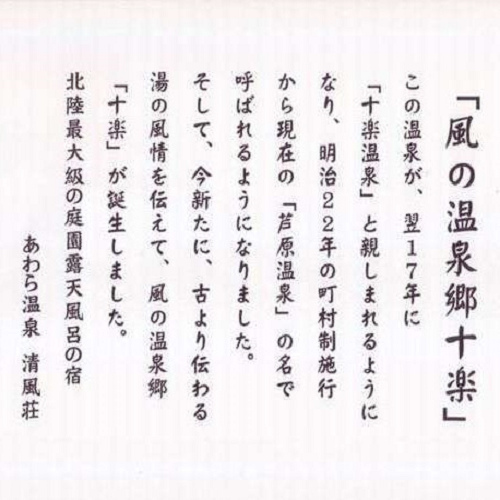 「風の温泉郷十楽」
この温泉が、翌17年に
「十楽温泉」と親しまれるように
なり、明治22年の町村制施行
から現在の「芦原温泉」の名で
呼ばれるようになりました。
そして、今新たに、古より伝わる
湯の風情を伝えて、風の温泉郷
「十楽」が誕生しました。
北陸最大級の庭園露天風呂の宿
あわら温泉 清風荘